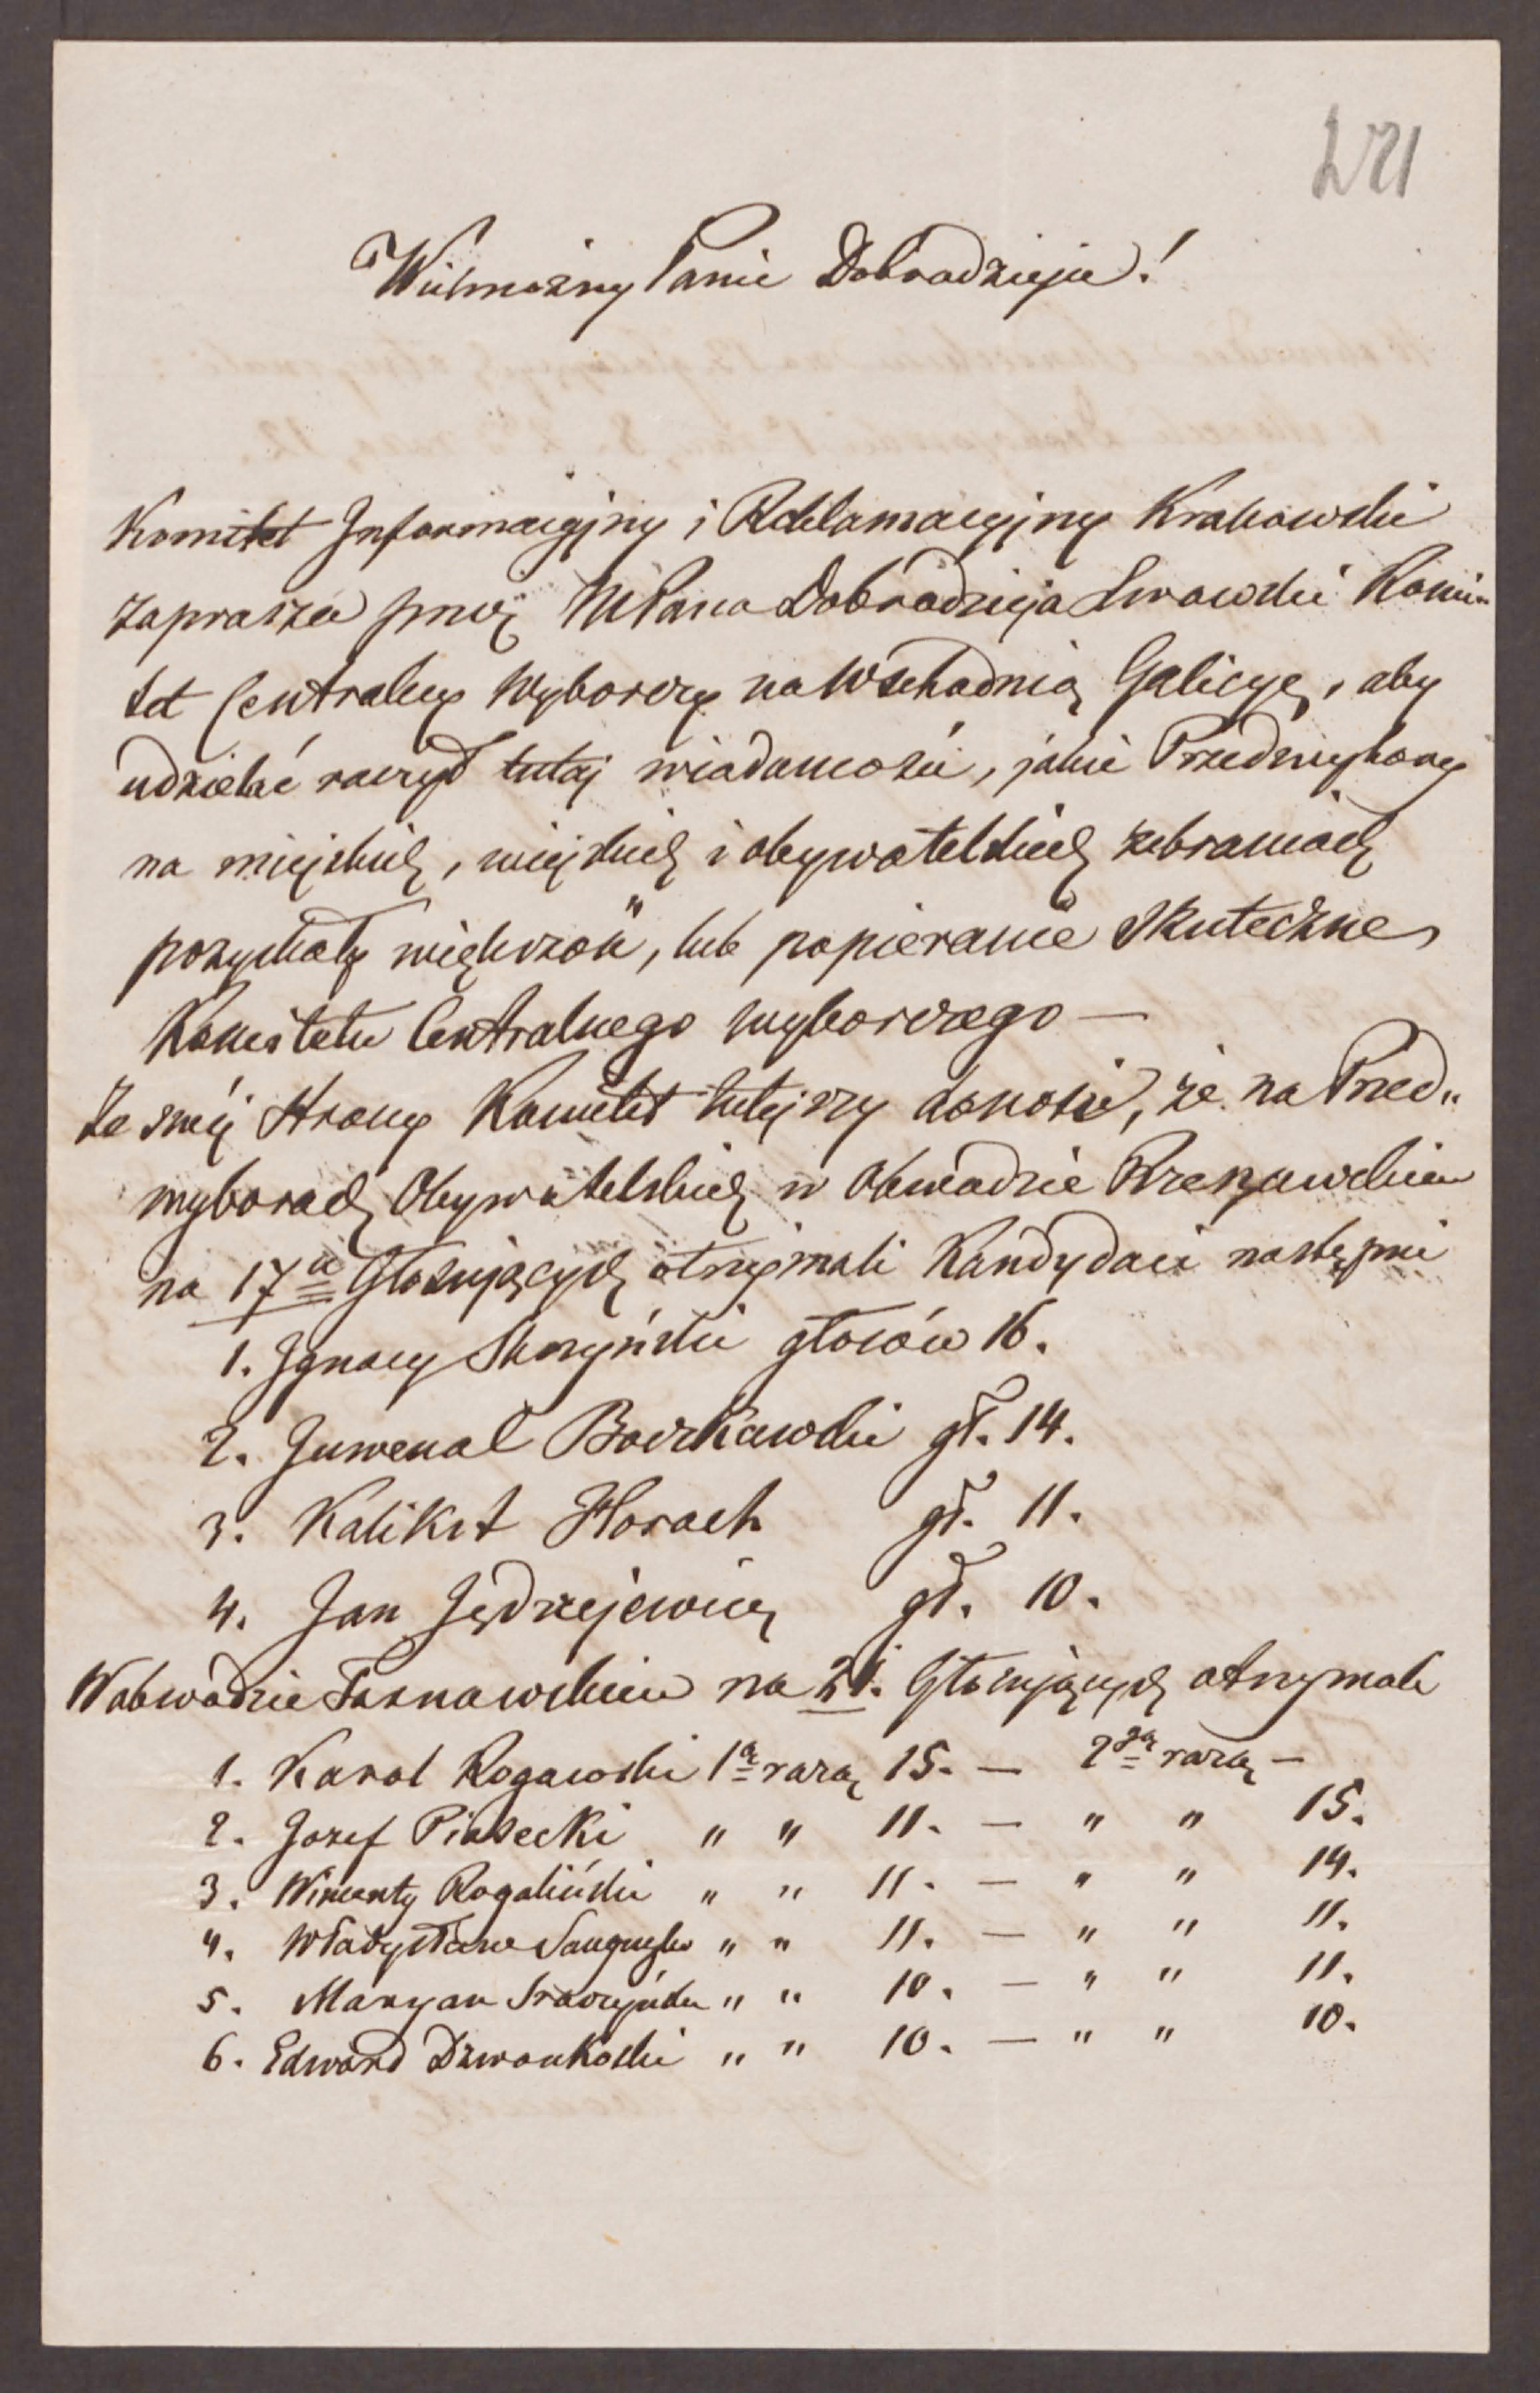 221
Wielmożny Panie Dobrodzieju!
Komitet Informacyjny i Reklamacyjny Krakowski
zaprasza przez WPana Dobrodzieja Lwowski Komi„
tet Centralny Wyborczy na Wschodnią Galicyę, aby
udzielać raczył tutaj wiadomości, jakie Przedwybory
na miejskich, wiejskich i obywatelskich zebraniach
pozyskały większość, lub popieranie skuteczne
Komitetu Centralnego wyborczego —
Ze swéj strony Komitet tutejszy donosi, że na Przed„
wyborach Obywatelskich w Obwodzie Rzeszowskim
na 17u Głosujących otrzymali Kandydaci następni
1. Ignacy Skrzyński głosów 16.
2. Juwenal Boczkowski gł. 14.
3. Kalikst Horoch gł. 11.
4. Jan Jędrzejewicz gł. 10.
W obwodzie Tarnowskim na 21. Głosujących otrzymali
1. Karol Rogawski 1ą razą 15. — 2gą razą —
2. Jozef Piasecki " " 11. — " " 15.
3. Wincenty Rogaliński " " 11. — " " 14.
4. Władysław Sanguszko " " 11. — " " 11.
5. Maryan " " 10. — " " 11.
6. Edward Dzwonkoski " " 10. — " " 10.